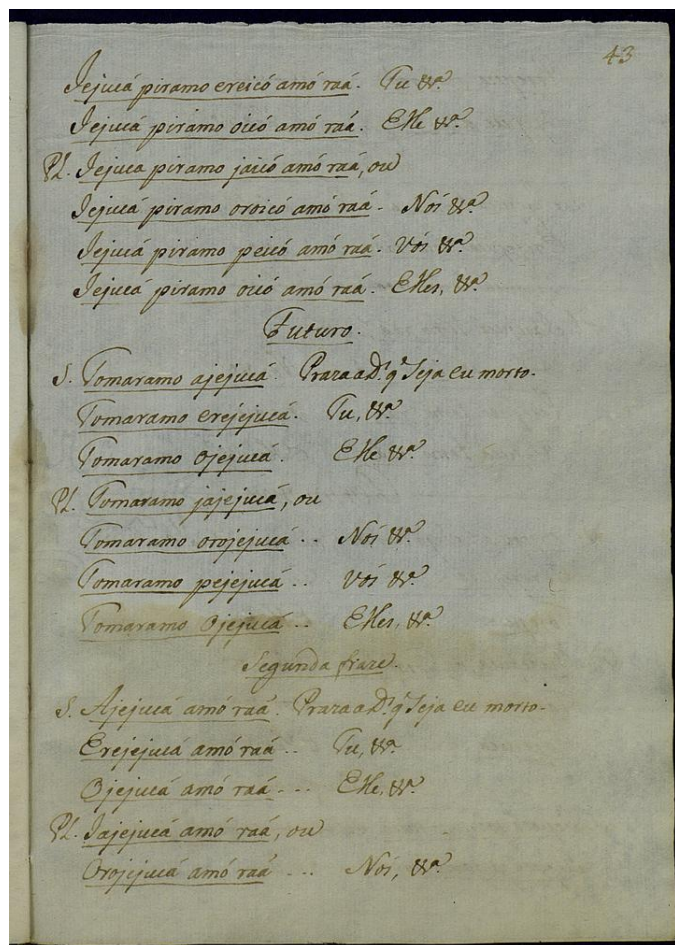 43
Jejucá piramo ereicó amó raá. Tu &ª
Jejucá piramo oicó amó raá. Elle &ª
Pl. Jejuca piramo jaicó amó raá, ou
Jejucá piramo oroicó amó raá. Nós &ª
Jejucá piramo peicó amó raá. Vós &ª
Jejucá piramo oicó amó raá. Elles, &ª
Futuro.
S. Tomaramo ajejucá. Praza a Dˢ qᵉ Seja eu morto.
Tomaramo erejejucá. Tu, &ª
Tomaramo ojejucá. Elle &ª
Pl. Tomaramo jajejucá, ou
Tomaramo orojejucá .. Nós &ª
Tomaramo pejejucá .. Vós &ª
Tomaramo Ojejucá .. Elles, &ª
Segunda fraze.
S. Ajejucá amó raá. Praza a Dˢ qᵉ Seja eu morto.
Erejejucá amó raá .. Tu, &ª
Ojejucá amó raá ... Elle, &ª
Pl. Jajejucá amó raá, ou
Orojejucá amó raá ... Nós, &ª